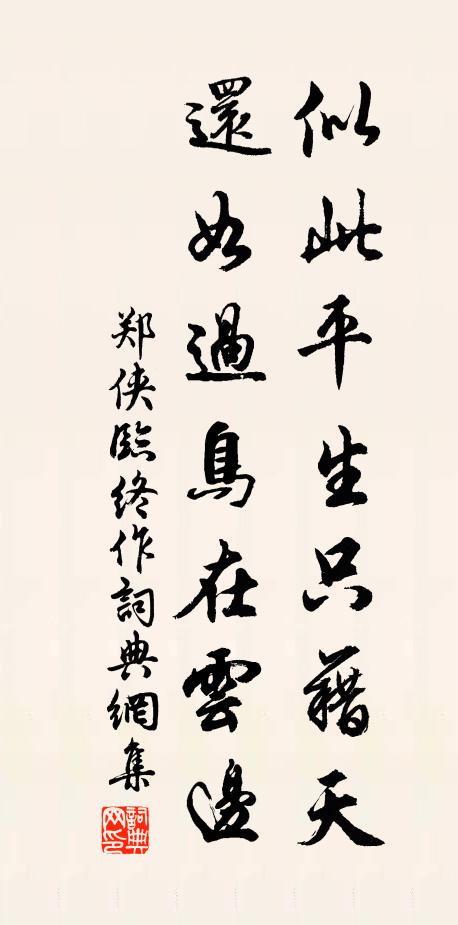 似此平生只藉天
還如過鳥在雲邊
郑侠臨终作詞典網集
詞典网印